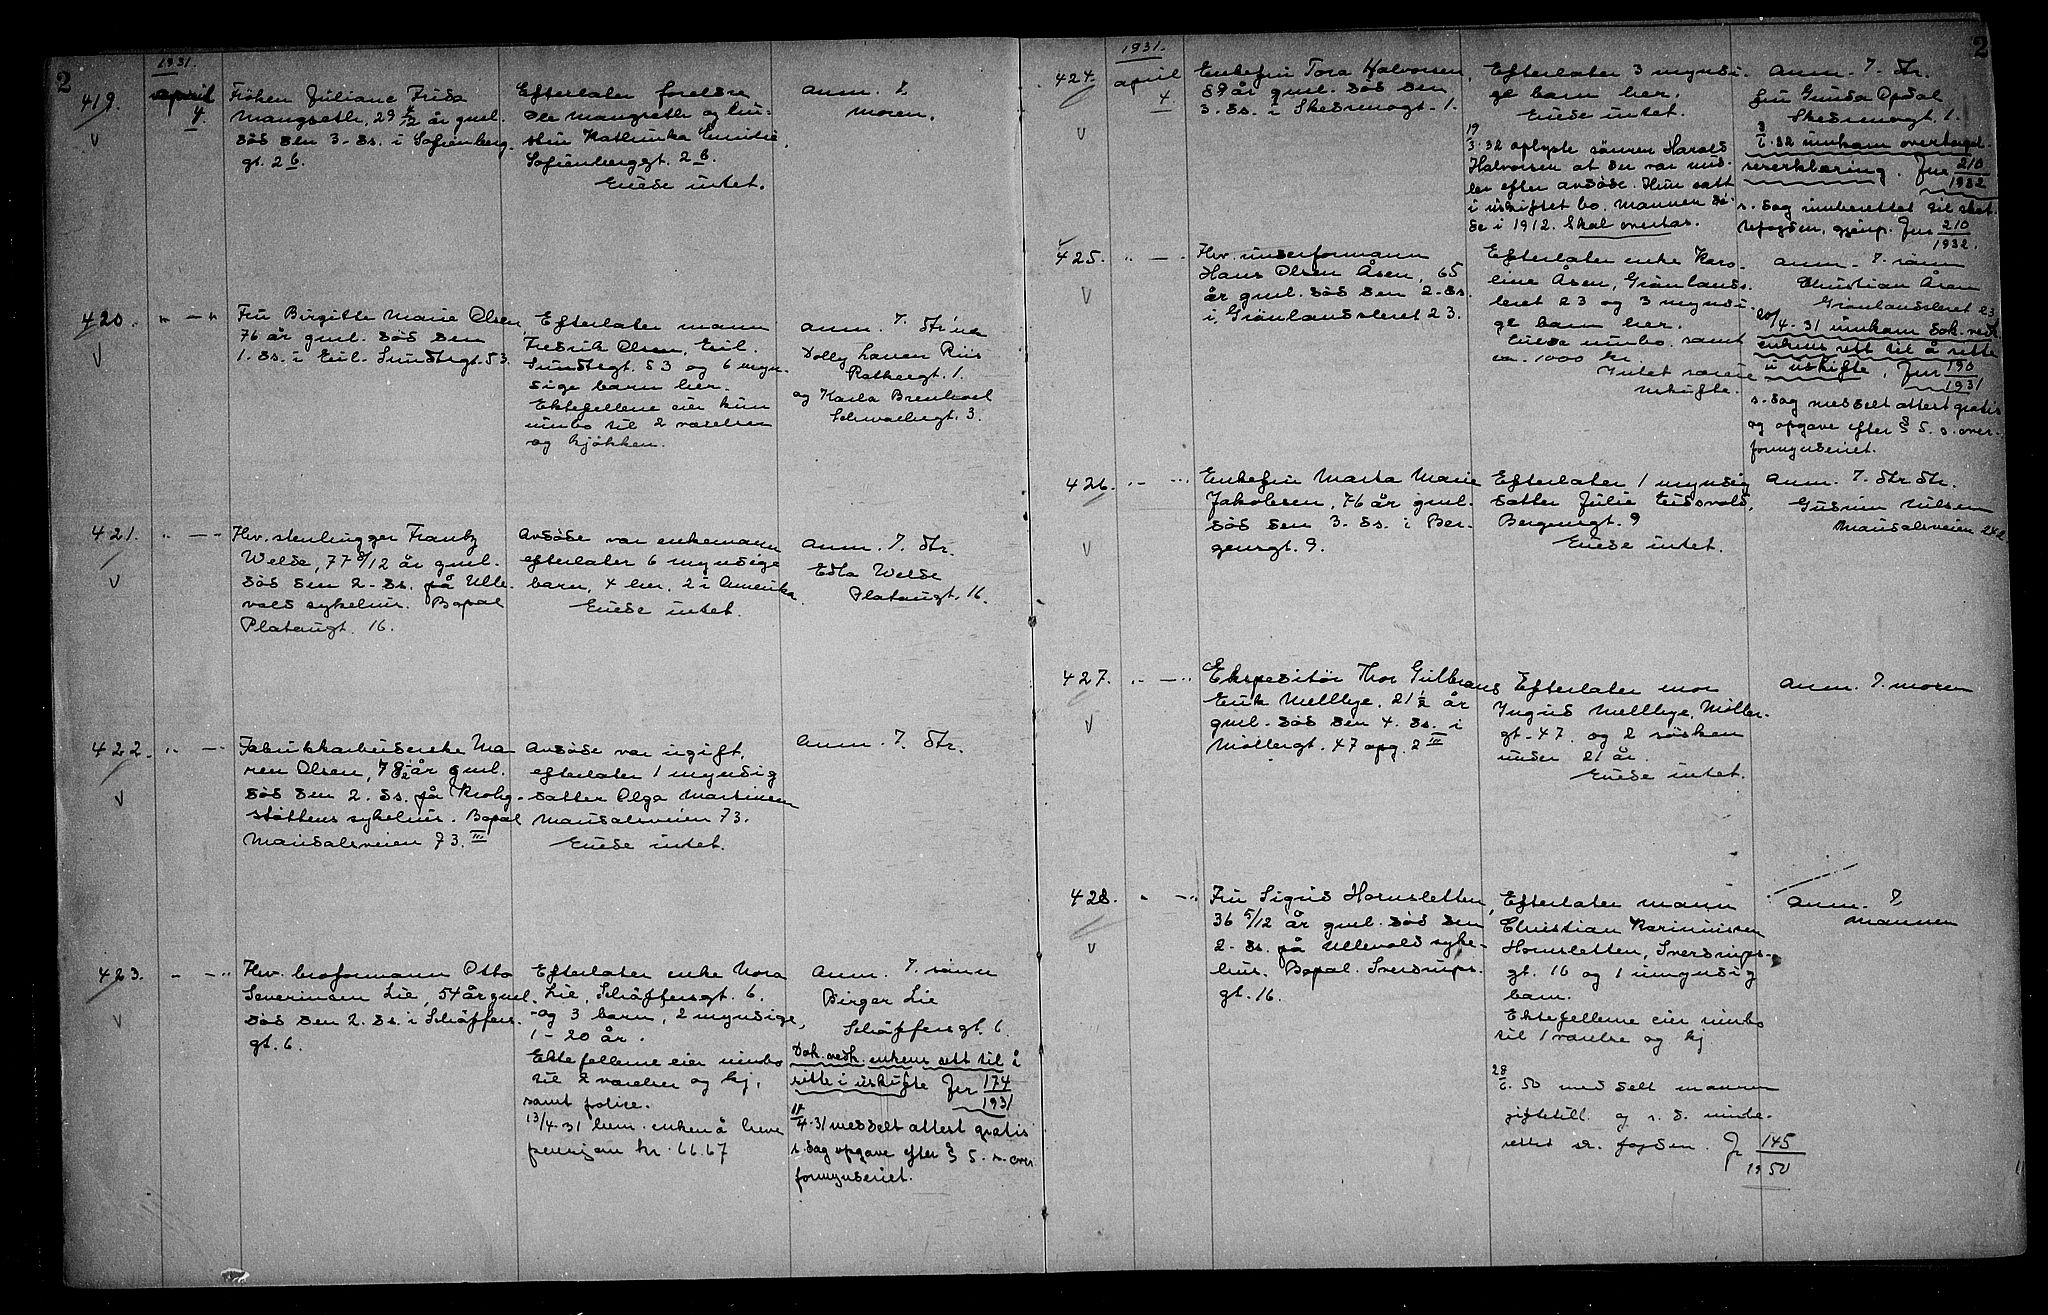 2
1931.
419.
april
4.
Frøken Juliane Frida
Mangseth, 29 ½ år gml.
død den 3. ds. i Sofienberg-
gt. 2 b.
Efterlater foreldre
Ole Mangseth og hu-
stru Kathinka Emilie
Sofienberggt. 2 b.
Eiede intet.
Anm. 7.
moren.
420.
Fru Birgitte Marie Olsen,
76 år gml. død den
1. ds. i Eil. Sundtsgt. 53.
Efterlater mann
Fredrik Olsen, Eil.
Sundtsgt. 53 og 6 myn-
dige barn her.
Ektefellene eier kun
innbo til 2 værelser
og kjøkken.
Anm. 7. dtr'ne
Dolly Lauen Riis
Rathkesgt. 1.
og Karla
Schwachsgt. 3.
421.
Hrv. stenhugger Frantz
Welde, 77 8/12 år gml.
død den 2. ds. på Ulle-
vold sykehus. Bopal
Plataugt. 16.
Avdøde var enkemann
efterlater 6 myndige
barn, 4 her, 2 i Amerika.
Eiede intet.
Anm. 7. dtr.
Edla Welde
Plataugt. 16.
422.
Fabrikkarbeiderske Ma-
ren Olsen, 78 ½ år gml.
død den 2. ds. på Krohg-
støttens sykehus. Bopal
Maridalsveien 73. III
Avdøde var ugift,
efterlater 1 myndig
datter Olga Martinsen
Maridalsveien 73.
Eiede intet.
Anm. 7. dtr.
423.
Hrv. broformann Otto
Severinsen Lie, 54 år gml.
død den 2. ds. i Schøffers-
gt. 6.
Efterlater enke Nora
Lie, Schøffersgt. 6.
og 3 barn, 2 myndige,
1 - 20 år.
Ektefellene eier innbo
til 2 værelser og kj.
samt police.
13/4-31 bem. enken å heve
pensjon kr. 66.67
Anm. 7. sønn
Birger Lie
Schøffersgt. 6.
Dok. vedk. enkens rett til å
sitte i uskifte Jnr 174
1931
4-31 meddelt attest gratis
s. dag opgave efter § 5. s. over
formynderiet.
2
1931.
424.
april
4
Enkefru Tora Halvorsen,
59 år gml. død den
3. ds. i Skedsmogt. 1.
Efterlater 3 myndi-
ge barn her.
Eiede intet.
19
3-32 oplyste sønnen Harald
Halvorsen at der var mid-
ler efter avdøde. Hun satt
i uskiftet bo. Mannen dø-
de i 1912. Skal overtas.
Anm. 7. dtr.
fru Gunda Opdal
Skedsmogt. 1.
innkom overtagel-
seserklæring. Jnr 210
1932
s. dag innberettet til skat-
tefogden, gjenp. Jnr 210
1932.
425.
Hrv. underformann
Hans Olsen Åsen, 65
år gml. død den 2. ds.
i Grønlandsleret 23.
Efterlater enke Karo-
line Åsen, Grønlands-
leret 23 og 3 myndi-
ge barn her.
Eiede innbo samt
ca. 1000 kr.
Intet særeie
uskifte.
Anm. 7. sønn
Christian Åsen
Grønlandsleret 23.
20/4-31 innkom dok. vedk.
enkens rett til å sitte
i uskifte, Jnr 190
1931
s. dag meddelt attest gratis
og opgave efter § 5. s. over-
formynderiet.
426.
Enkefru Marta Marie
Jakobsen, 76 år gml.
død den 3. ds. i Ber-
gensgt. 9.
Efterlater 1 myndig
datter Julie Eidsvold,
Bergensgt. 9
Eiede intet.
Anm. 7. dtr. dtr.
Gudrun Nilsen
Maridalsveien 242
427.
Ekspeditør Thor Gulbrans
Erik Mellbye, 21 ½ år
gml. død den 4. ds. i
Møllergt. 47 opg. 2 III
Efterlater mor
Ingrid Mellbye, Møller-
gt. 47. og 2 søsken
under 21 år.
Eiede intet.
Anm. 7. moren
428.
Fru Sigrid Hornsletten,
36 5/12 år gml. død den
2. ds. på Ullevold syke-
hus. Bopal. Sverdrups-
gt. 16.
Efterlater mann
Christian
Hornsletten, Sverdrups-
gt. 16 og 1 umyndig
barn.
Ektefellene eier innbo
til 1 værelse og kj
28
50 meddelt mannen
giftetill. og s. d. innbe-
rettet sk. fogden. J 145
1950
Anm. 7.
mannen